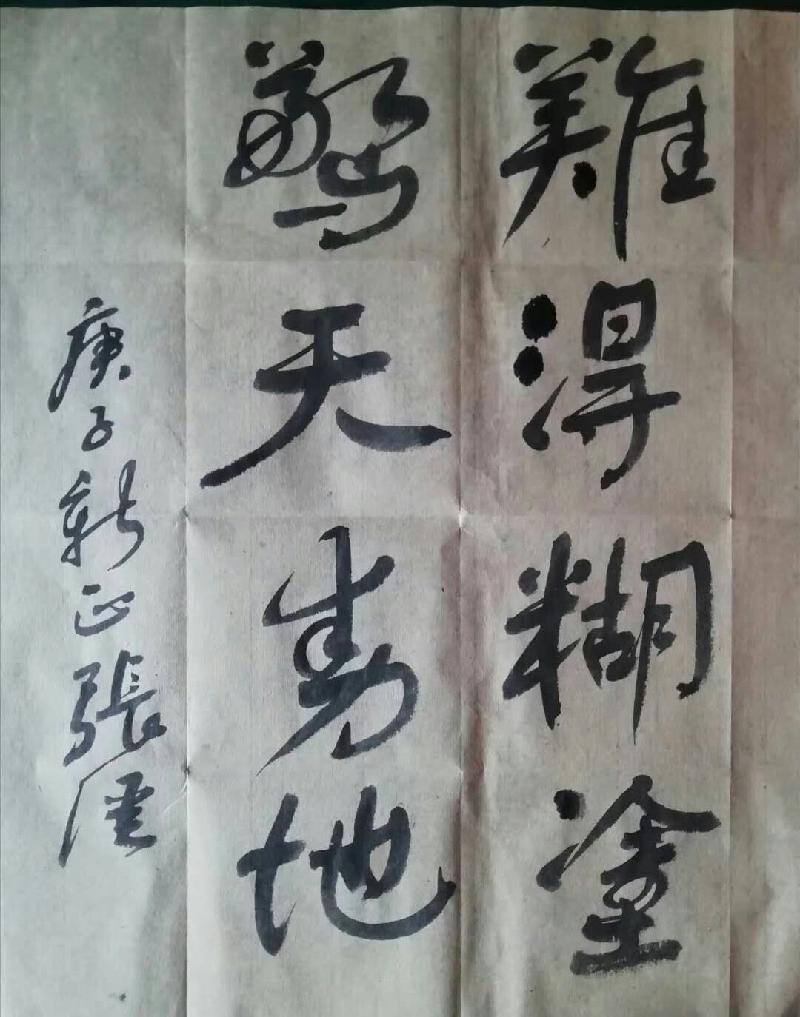 難得糊塗
驚天動地
庚子新正張